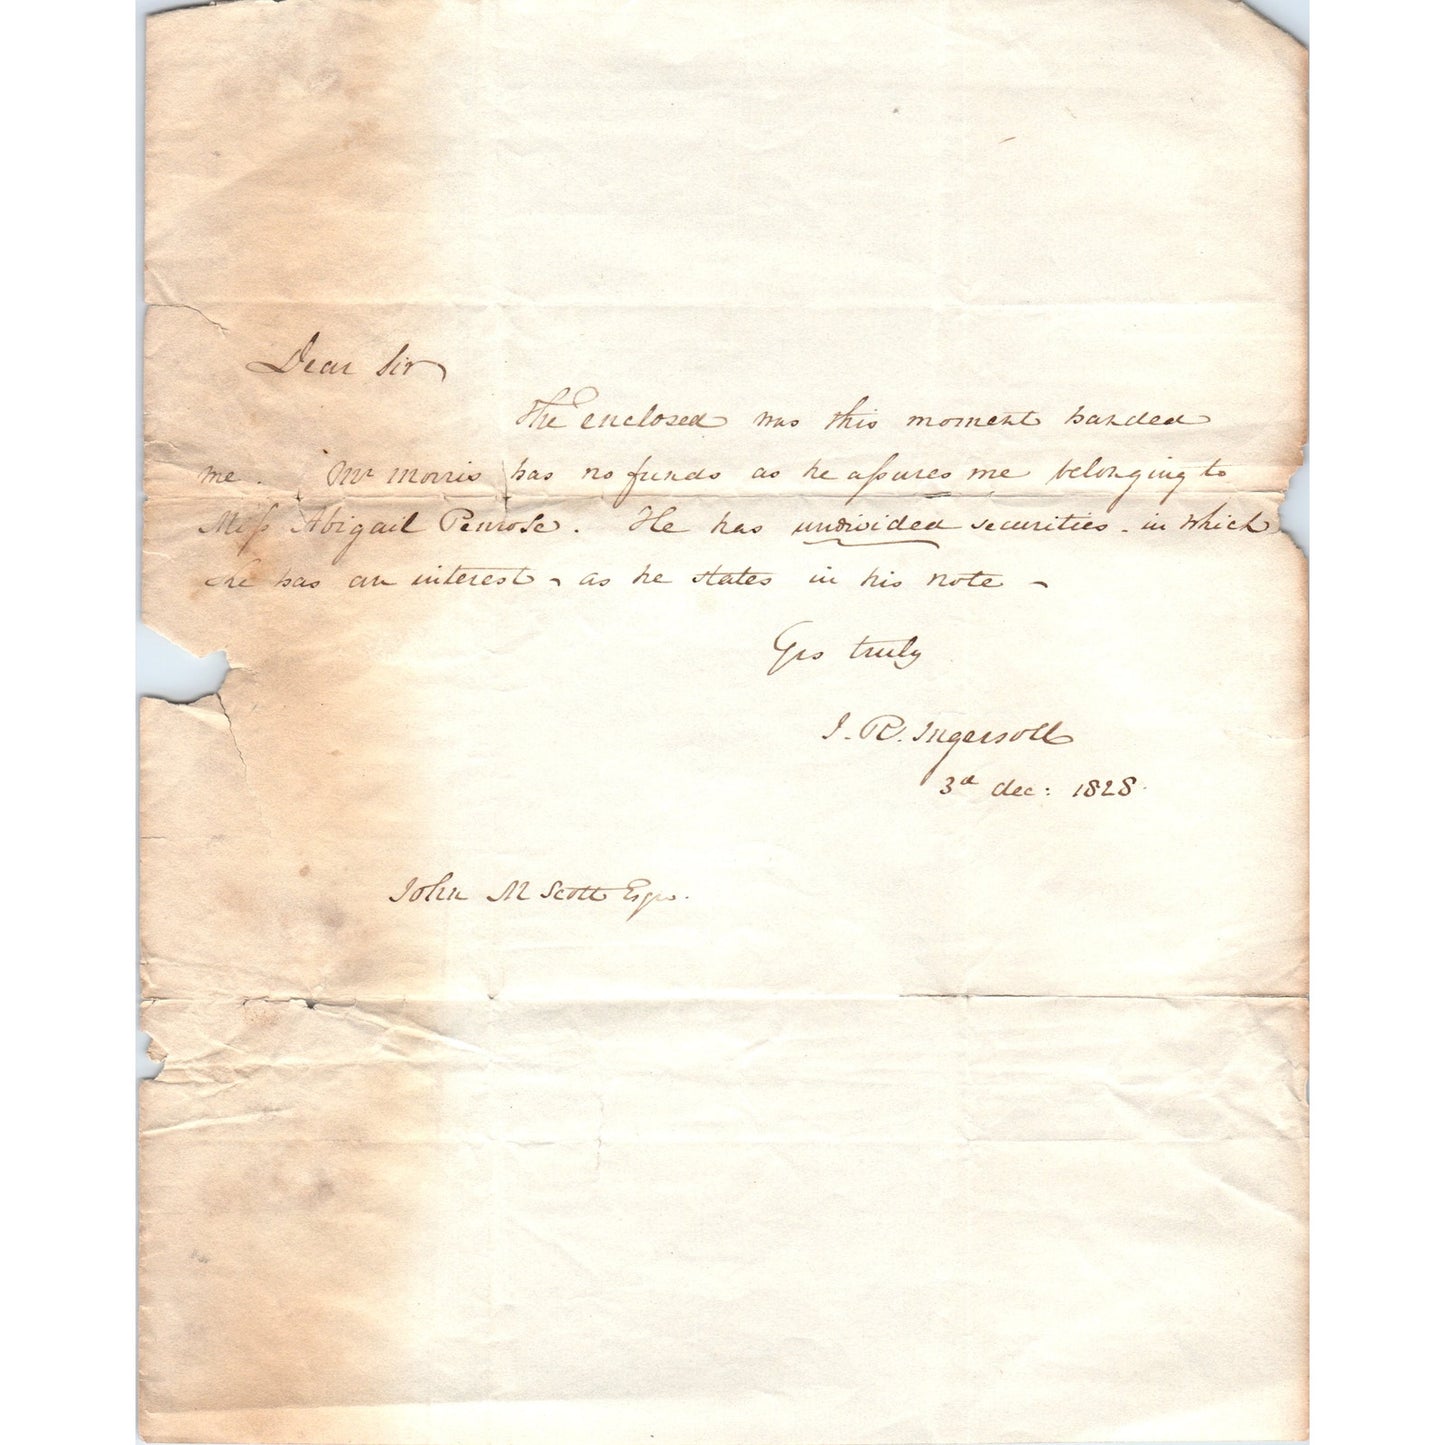 Dear Sir
The enclosed was this moment handed
me. Mr Morris has no funds as he assures me belonging to
Miss Abigail Penrose. He has undivided securities - in which
she has an interest - as he states in his note -
Yrs truly
J. R. Ingersoll
3d dec: 1828.
John M Scott Esqr.